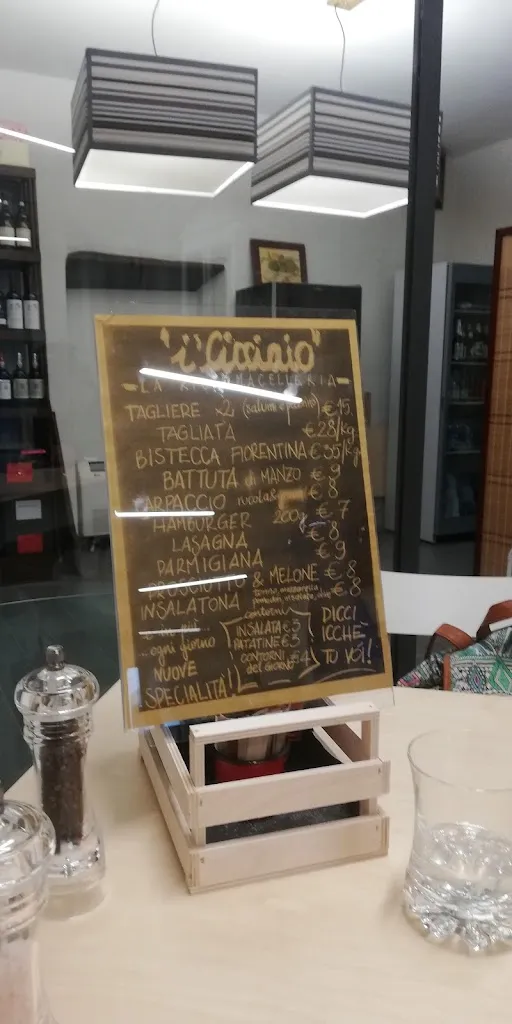 "i' Ciccaio"
LA MACELLERIA
TAGLIERE x2 (salumi e ) € 15
TAGLIATA € 28/kg
BISTECCA FIORENTINA € 35/kg
BATTUTA di MANZO € 9
CARPACCIO rucola & € 8
HAMBURGER 200g € 7
LASAGNA € 8
PARMIGIANA € 9
PROSCIUTTO & MELONE € 8
INSALATONA € 8
tonno, mozzarella
pomodori, insalata,
in più...
...ogni giorno
NUOVE
SPECIALITÀ!
contorni
INSALATA € 3
PATATINE € 3
CONTORNI € 4
del GIORNO
DICCI
ICCHÈ
TU VOI!